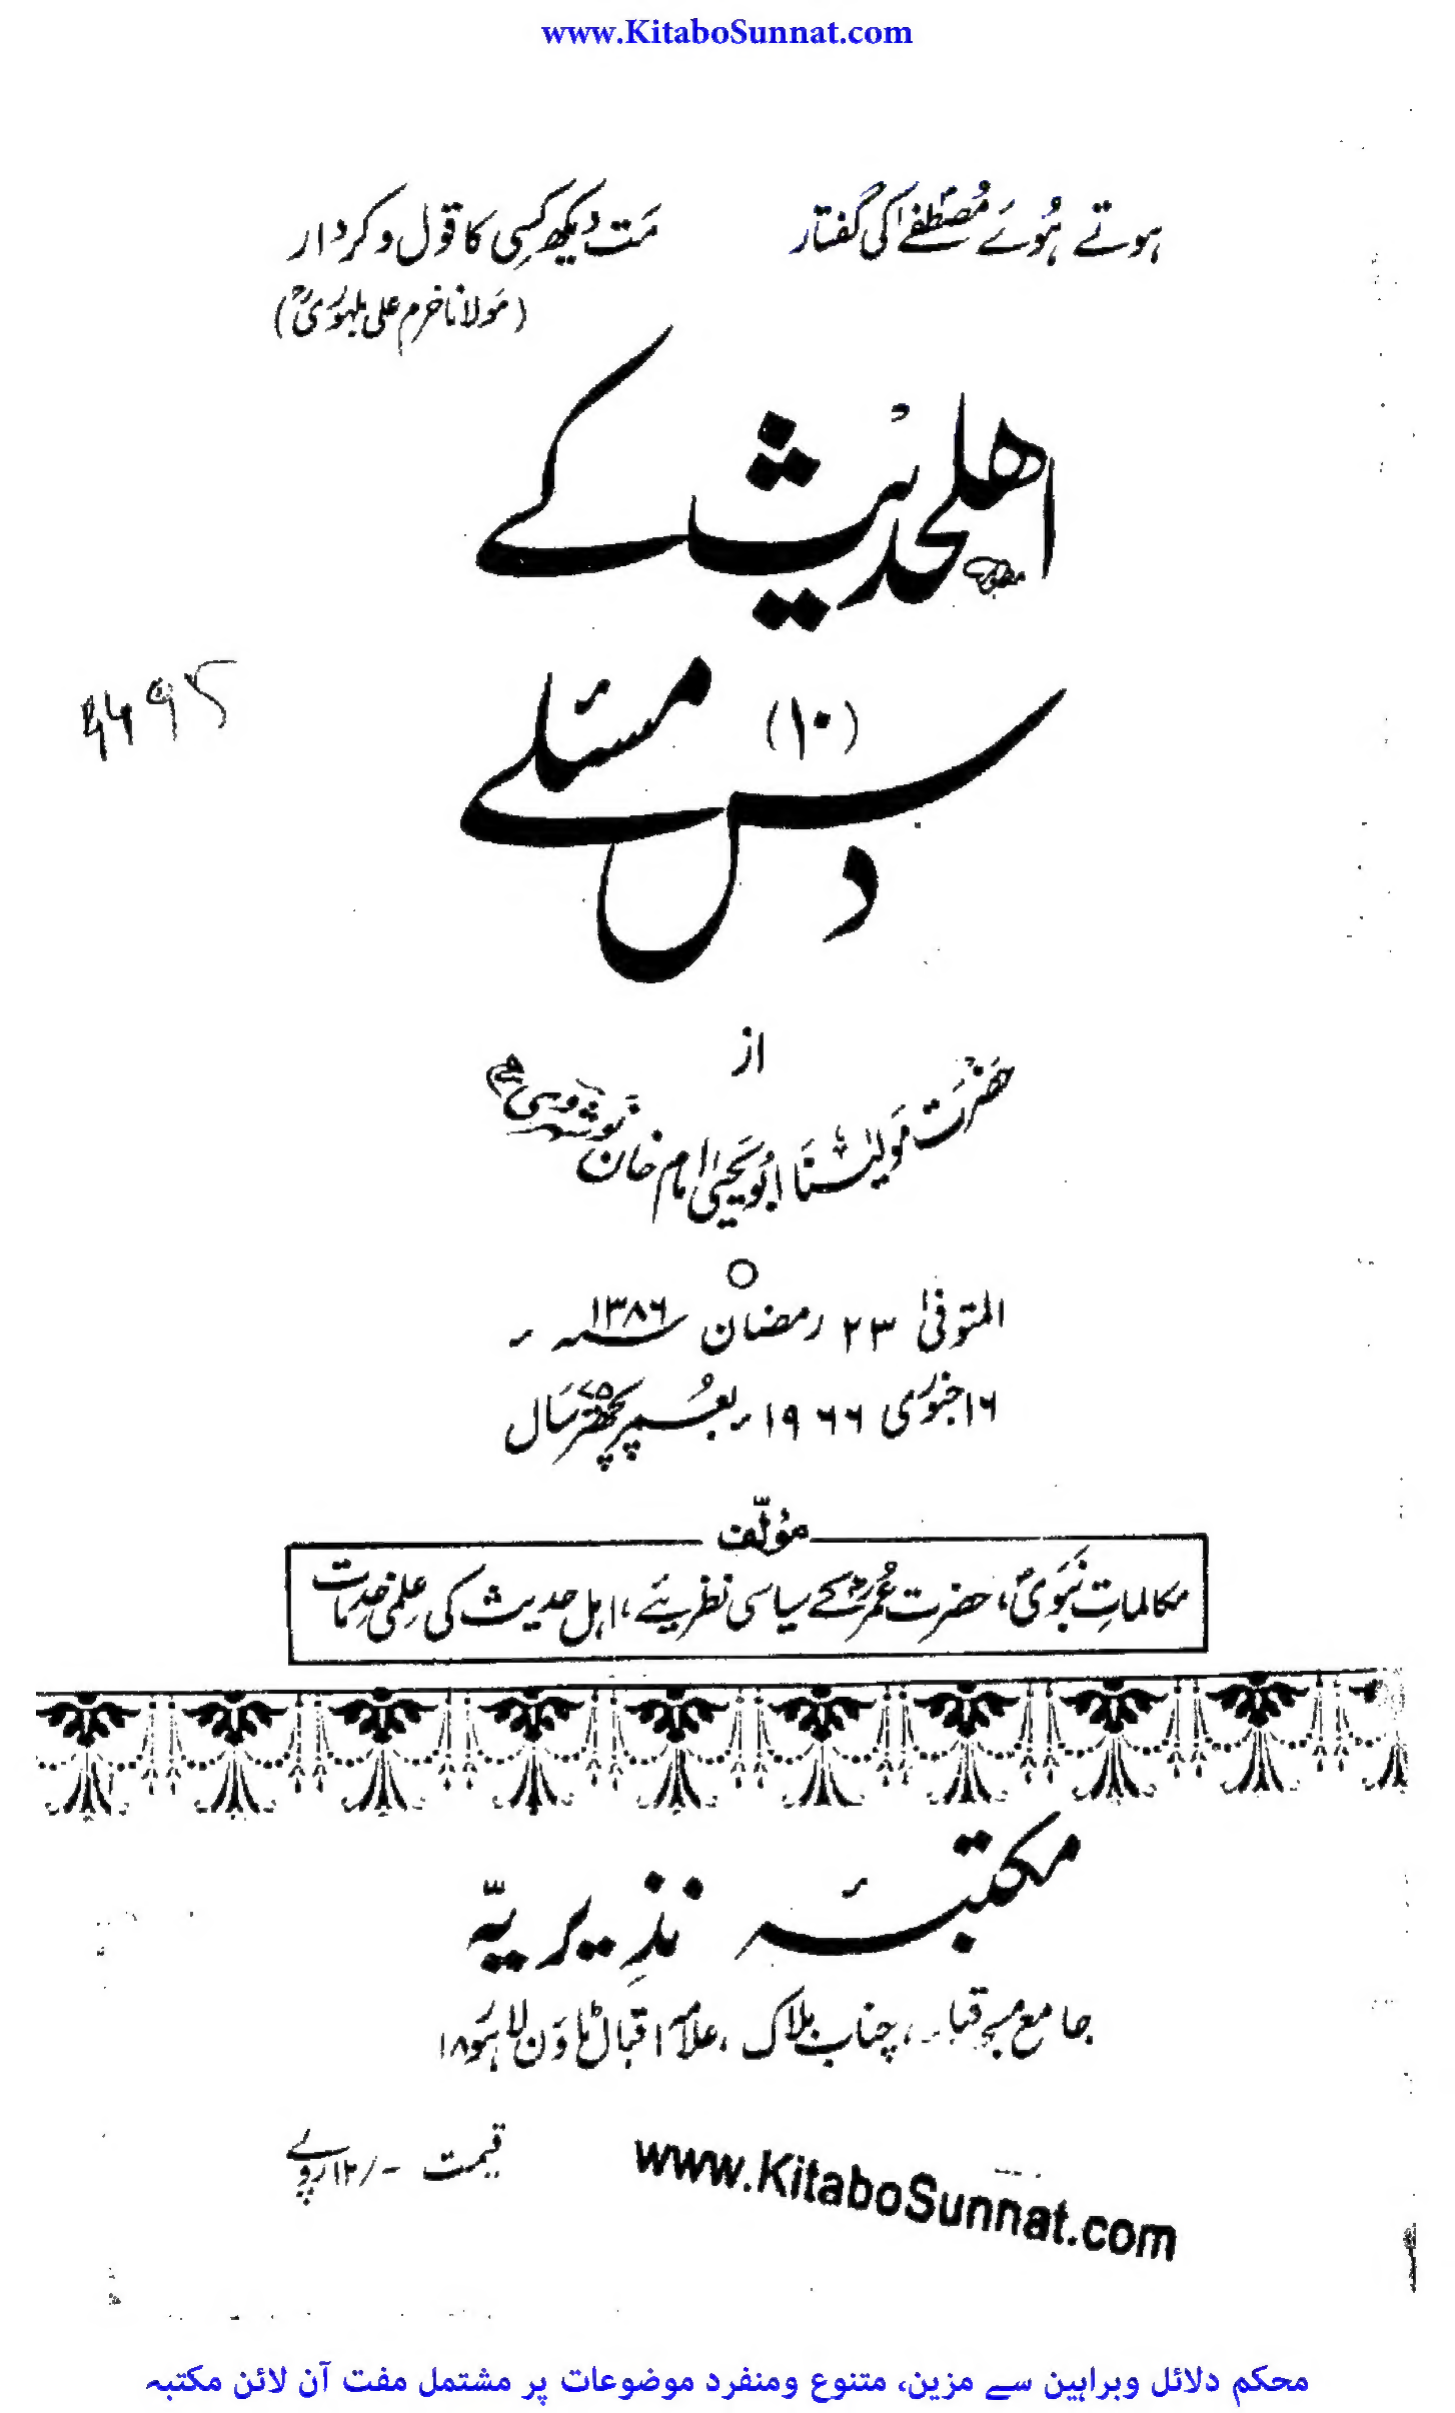 www.KitaboSunnat.com
ہوتے ہُوئے مُصطفےٰؐ کی گفتار مَت دیکھ کسِی کا قول و کردار
(مَولانا خرم علی بلہوَریؒ)
اھلحدیث کے
4495
دس (۱۰) مسئلے
از
حضرَت مَولیٰنا ابُو یحییٰ امام خان نوشہروی
المتوفیٰ ۲۳ رمضان ۱۳۸۶ سنہ ہ
۱۶ جنوری ۱۹۶۶ء بعُمر پچھتر ۷۵ سَال
مؤلّف
مکالماتِ نبَویؐ، حضرت عُمرؓ کے سیاسی نظریئے، اہل حدیث کی عِلمی خدِمات
مکتبۂ نذِیریّہ
جامع مسجد قبا، چناب بلاک، علامہ اقبال ٹاؤن لاہَور ۱۸
قیمت -/۱۲ روپے
www.KitaboSunnat.com
محکم دلائل وبراہین سے مزین، متنوع ومنفرد موضوعات پر مشتمل مفت آن لائن مکتبہ